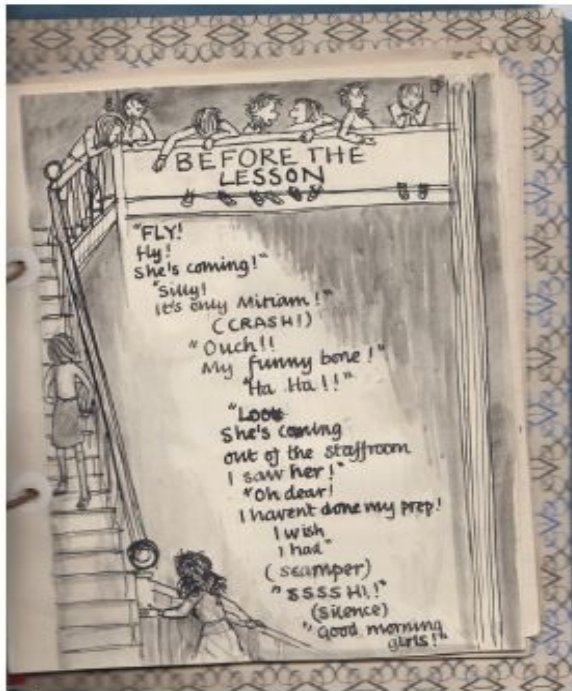 BEFORE THE
LESSON
"FLY!
Fly!
She's coming!"
"Silly!
It's only Miriam!"
(CRASH!)
"Ouch!!
My funny bone!"
"Ha Ha!!"
"Look
She's coming
out of the staffroom
I saw her!"
"Oh dear!
I havent done my prep!
I wish
I had"
(scamper)
"SSSSH!!"
(silence)
"Good morning
girls!"